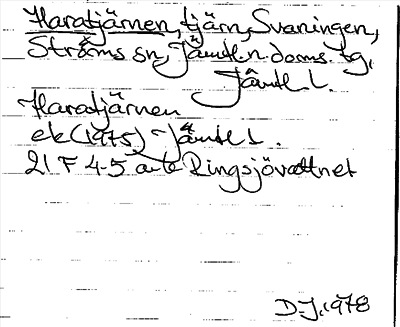 Haratjärnen, tjärn, Svaningen,
Ströms sn, Jämtl. n. doms. tg,
Jämtl l.
Haratjärnen
ek (1975) Jämtl l.
21 F 4-5 a-b Ringsjövattnet
D.J. 1978